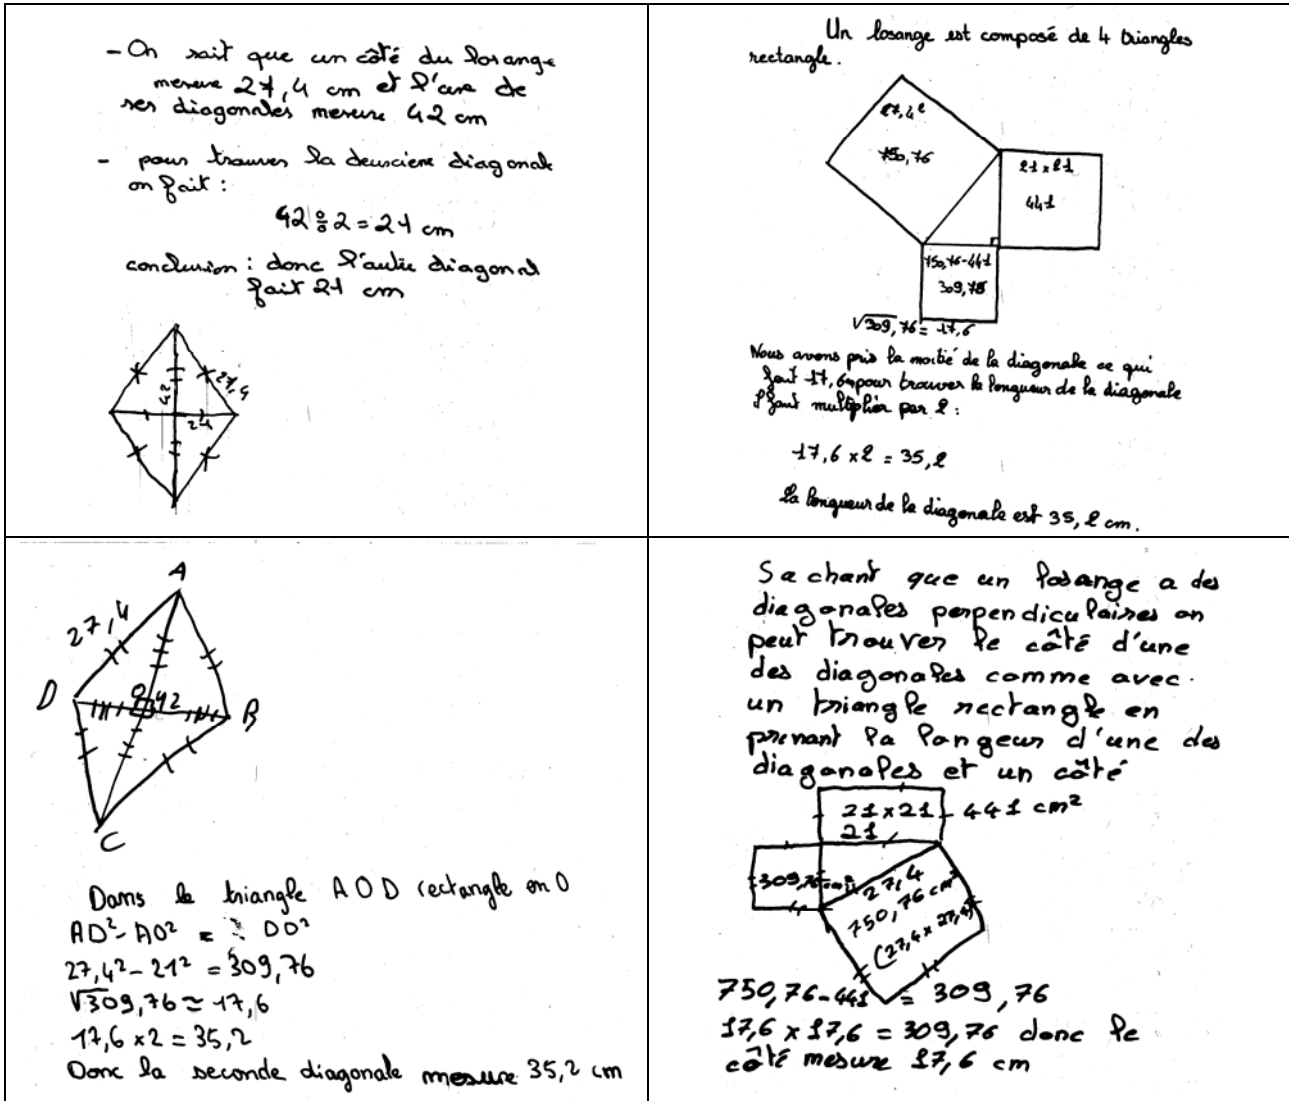 - On sait que un côté du losange
mesure 27,4 cm et l'une de
ses diagonales mesure 42 cm
- pour trouver la deuxciere diagonale
on fait :
42 ÷ 2 = 21 cm
conclusion : donc l'autre diagonal
fait 21 cm
27,4
42
21
Un losange est composé de 4 triangles
rectangle.
27,4²
750,76
21 x 21
441
750,76-441
309,76
√309,76 = 17,6
Nous avons pris la moitié de la diagonale ce qui
fait 17,6 pour trouver la longueur de la diagonale
il faut multiplier par 2 :
17,6 x 2 = 35,2
la longueur de la diagonale est 35,2 cm.
A
27,4
D
O
42
B
C
Dans le triangle AOD rectangle en O
AD² - AO² = DO²
27,4² - 21² = 309,76
√309,76 ≃ 17,6
17,6 x 2 = 35,2
Donc la seconde diagonale mesure 35,2 cm
Sachant que un losange a des
diagonales perpendiculaires on
peut trouver le côté d'une
des diagonales comme avec
un triangle rectangle en
prenant la longeur d'une des
diagonales et un côté
21 x 21
441 cm²
21
309,76 cm²
27,4
750,76 cm²
(27,4 x 27,4)
750,76 - 441 = 309,76
17,6 x 17,6 = 309,76 donc le
côté mesure 17,6 cm